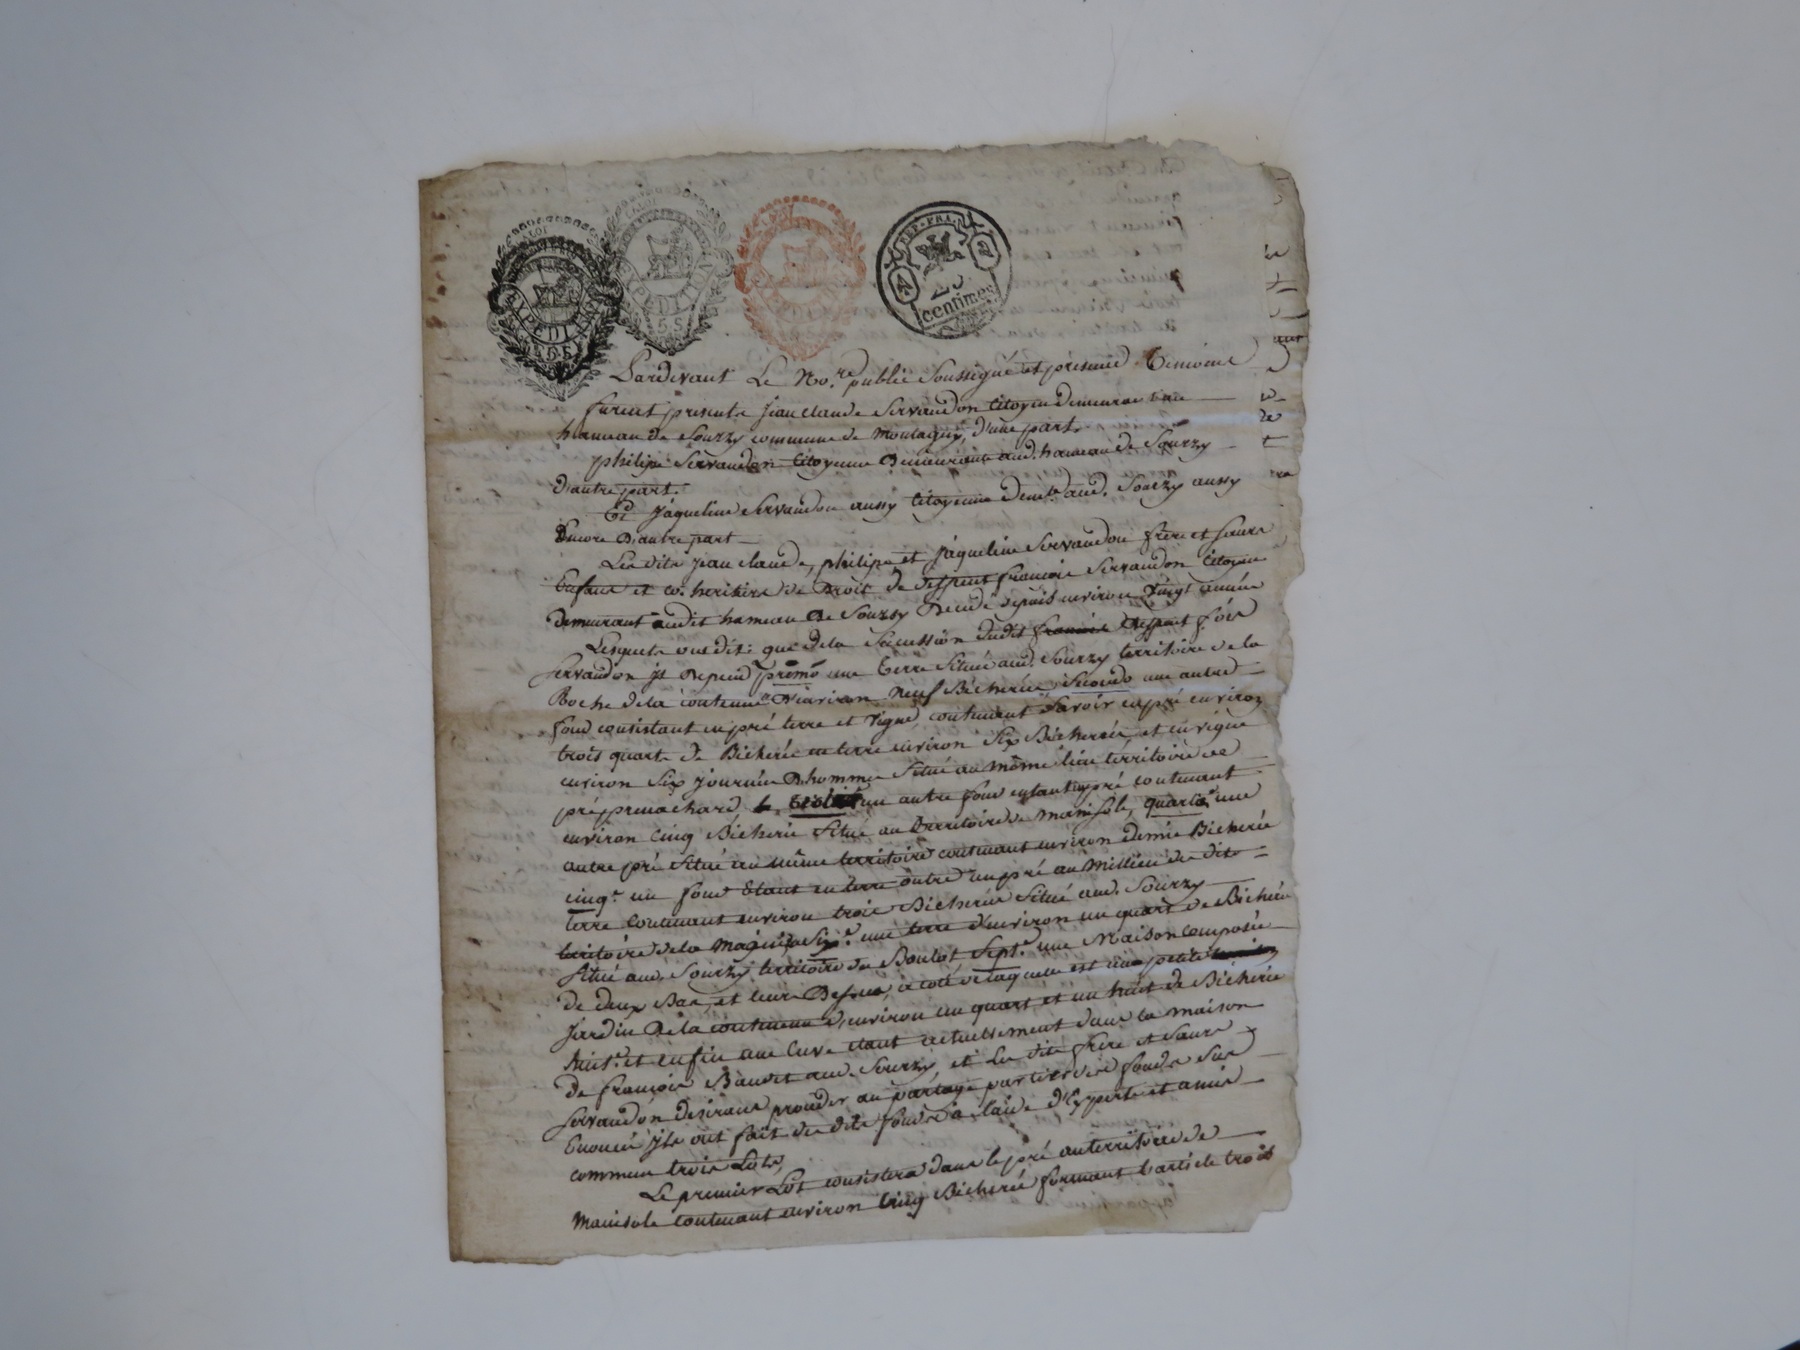 LA LOI
EXPEDITION
5.S
LA LOI
EXPEDITION
5.S
LA LOI
REP. FRA.
25
centimes
Pardevant Le No.re public Soussigné et présence Témoins
furent presents Jean Claude Servandon Citoyen demeurant au
hameau de Sourzy commune de Montagny, d'une part.
philipe Servandon Citoyenne Demeurante aud. hameau de Sourzy
D'autre part.
Et Jaqueline Servandon aussy Citoyenne dem.te aud. Sourzy aussy
Encore D'autre part
Lesdits Jean Claude, philipe et Jaqueline Servandon frère et sœurs
Enfans et co-heritiers de Droit de deffunt françois Servandon Citoyen
Demeurant audit hameau De Sourzy Décédé depuis environ Vingt année
Lesquels ont dit: que de la Sucession dudit françois deffunt f.ois
Servandon il Depend primo une Terre Située aud. Sourzy territoire de la
Roche de la contenue D'environ Neuf Bicherées; Secondo une autre
fond consistant en pré terre et Vigne, contenant Savoir en pré environ
trois quart de Bicherée en terre environ Six Bicherées, et en vigne
environ Six journées D'homme Situé au même lieu territoire de
pré un autre fond étant en pré contenant
environ Cinq Bicherées Situé au territoire de Manisole, quarto une
autre pré Situé au même territoire contenant environ demie Bicherée
cinq.o un fond Etant en terre outre un pré au Millieu de dite
terre Contenant environ trois Bicherées Situé aud. Sourzy
territoire de la Six.o une terre d'environ un quart de Bicherée
Située aud. Sourzy territoire du Boulot Sept.o une Maison composée
de deux Bas, et leurs Dessus, à coté de laquelle est une petite
Jardin De la contenue d'environ un quart et un huit de Bicherée
huit.o et enfin une Cuve étant actuellement dans la maison
De françois aud. Sourzy, et Les dits frère et Sœurs
Servandon desirans proceder au partage partiel des fonds Sus
Enoncés ils ont fait des dits fonds à l'aide d'Experts et amis
commun trois Lots,
Le premier Lot consistera dans le pré au territoire de
Manisole Contenant environ Cinq Bicherées formant l'article trois